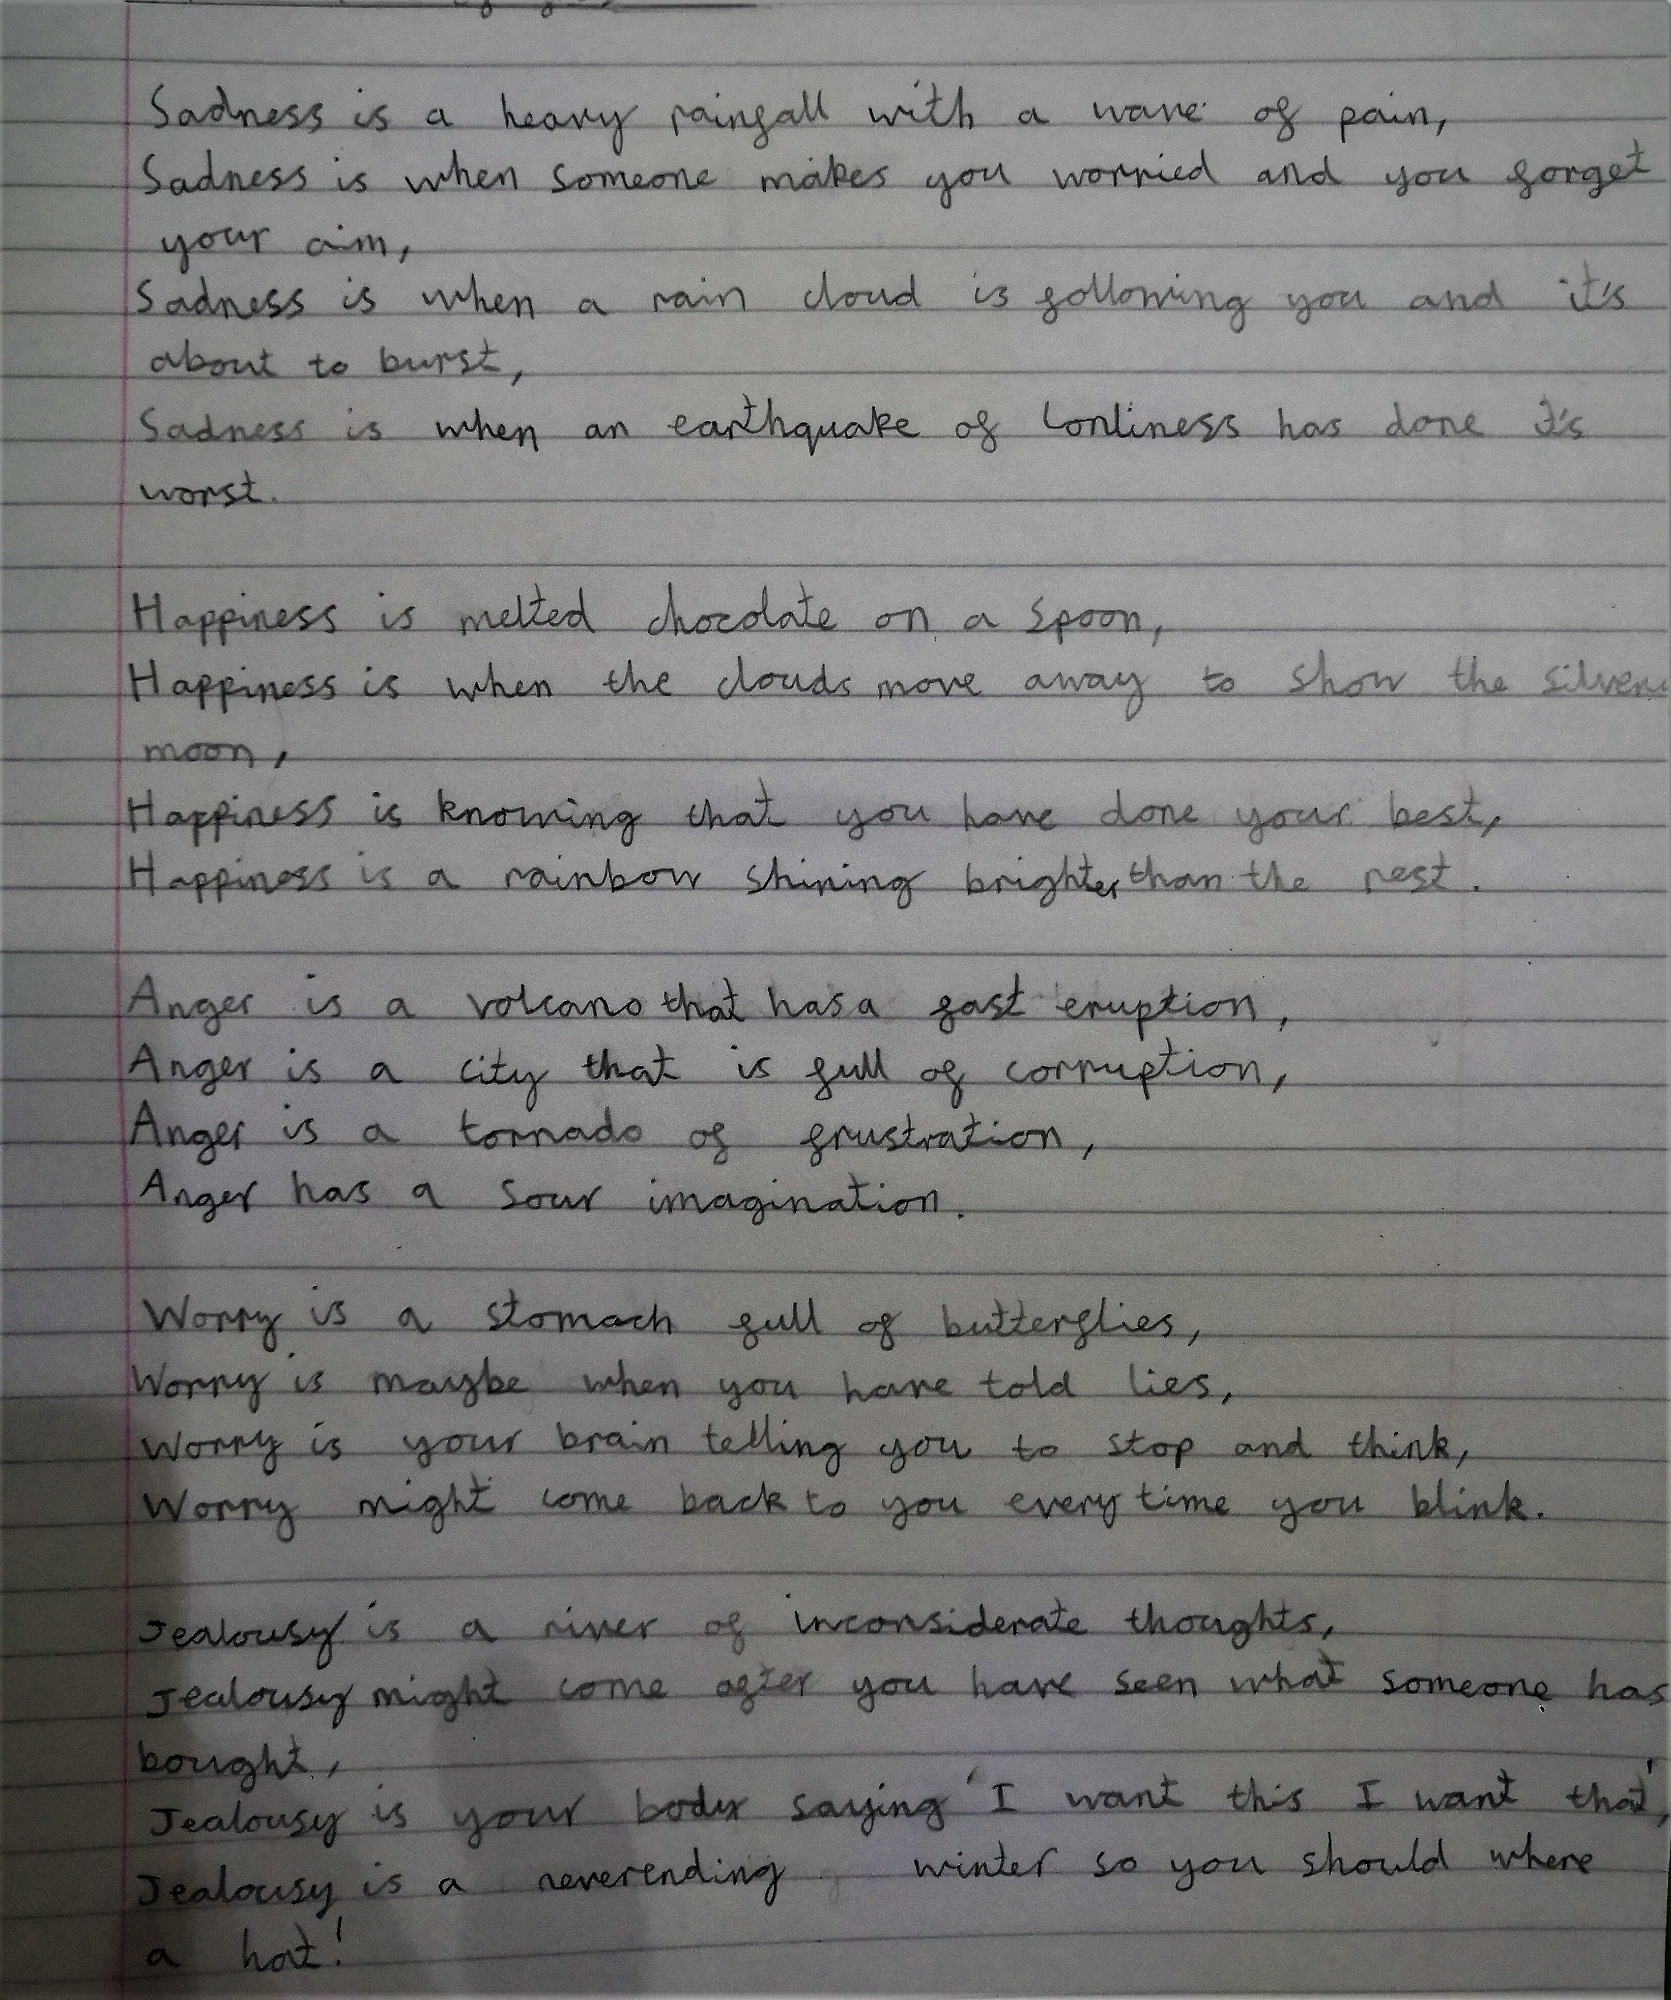 Sadness is a heavy rainfall with a wave of pain,
Sadness is when someone makes you worried and you forget
your aim,
Sadness is when a rain cloud is following you and it's
about to burst,
Sadness is when an earthquake of lonliness has done it's
worst.
Happiness is melted chocolate on a spoon,
Happiness is when the clouds move away to show the
moon,
Happiness is knowing that you have done your best,
Happiness is a rainbow shining brighter than the rest.
Anger is a volcano that has a fast eruption,
Anger is a city that is full of corruption,
Anger is a tornado of frustration,
Anger has a sour imagination.
Worry is a stomach full of butterflies,
Worry is maybe when you have told lies,
Worry is your brain telling you to stop and think,
Worry might come back to you every time you blink.
Jealousy is a river of inconsiderate thoughts,
Jealousy might come after you have seen what someone has
bought,
Jealousy is your body saying 'I want this I want that',
Jealousy is a neverending winter so you should where
a hat!